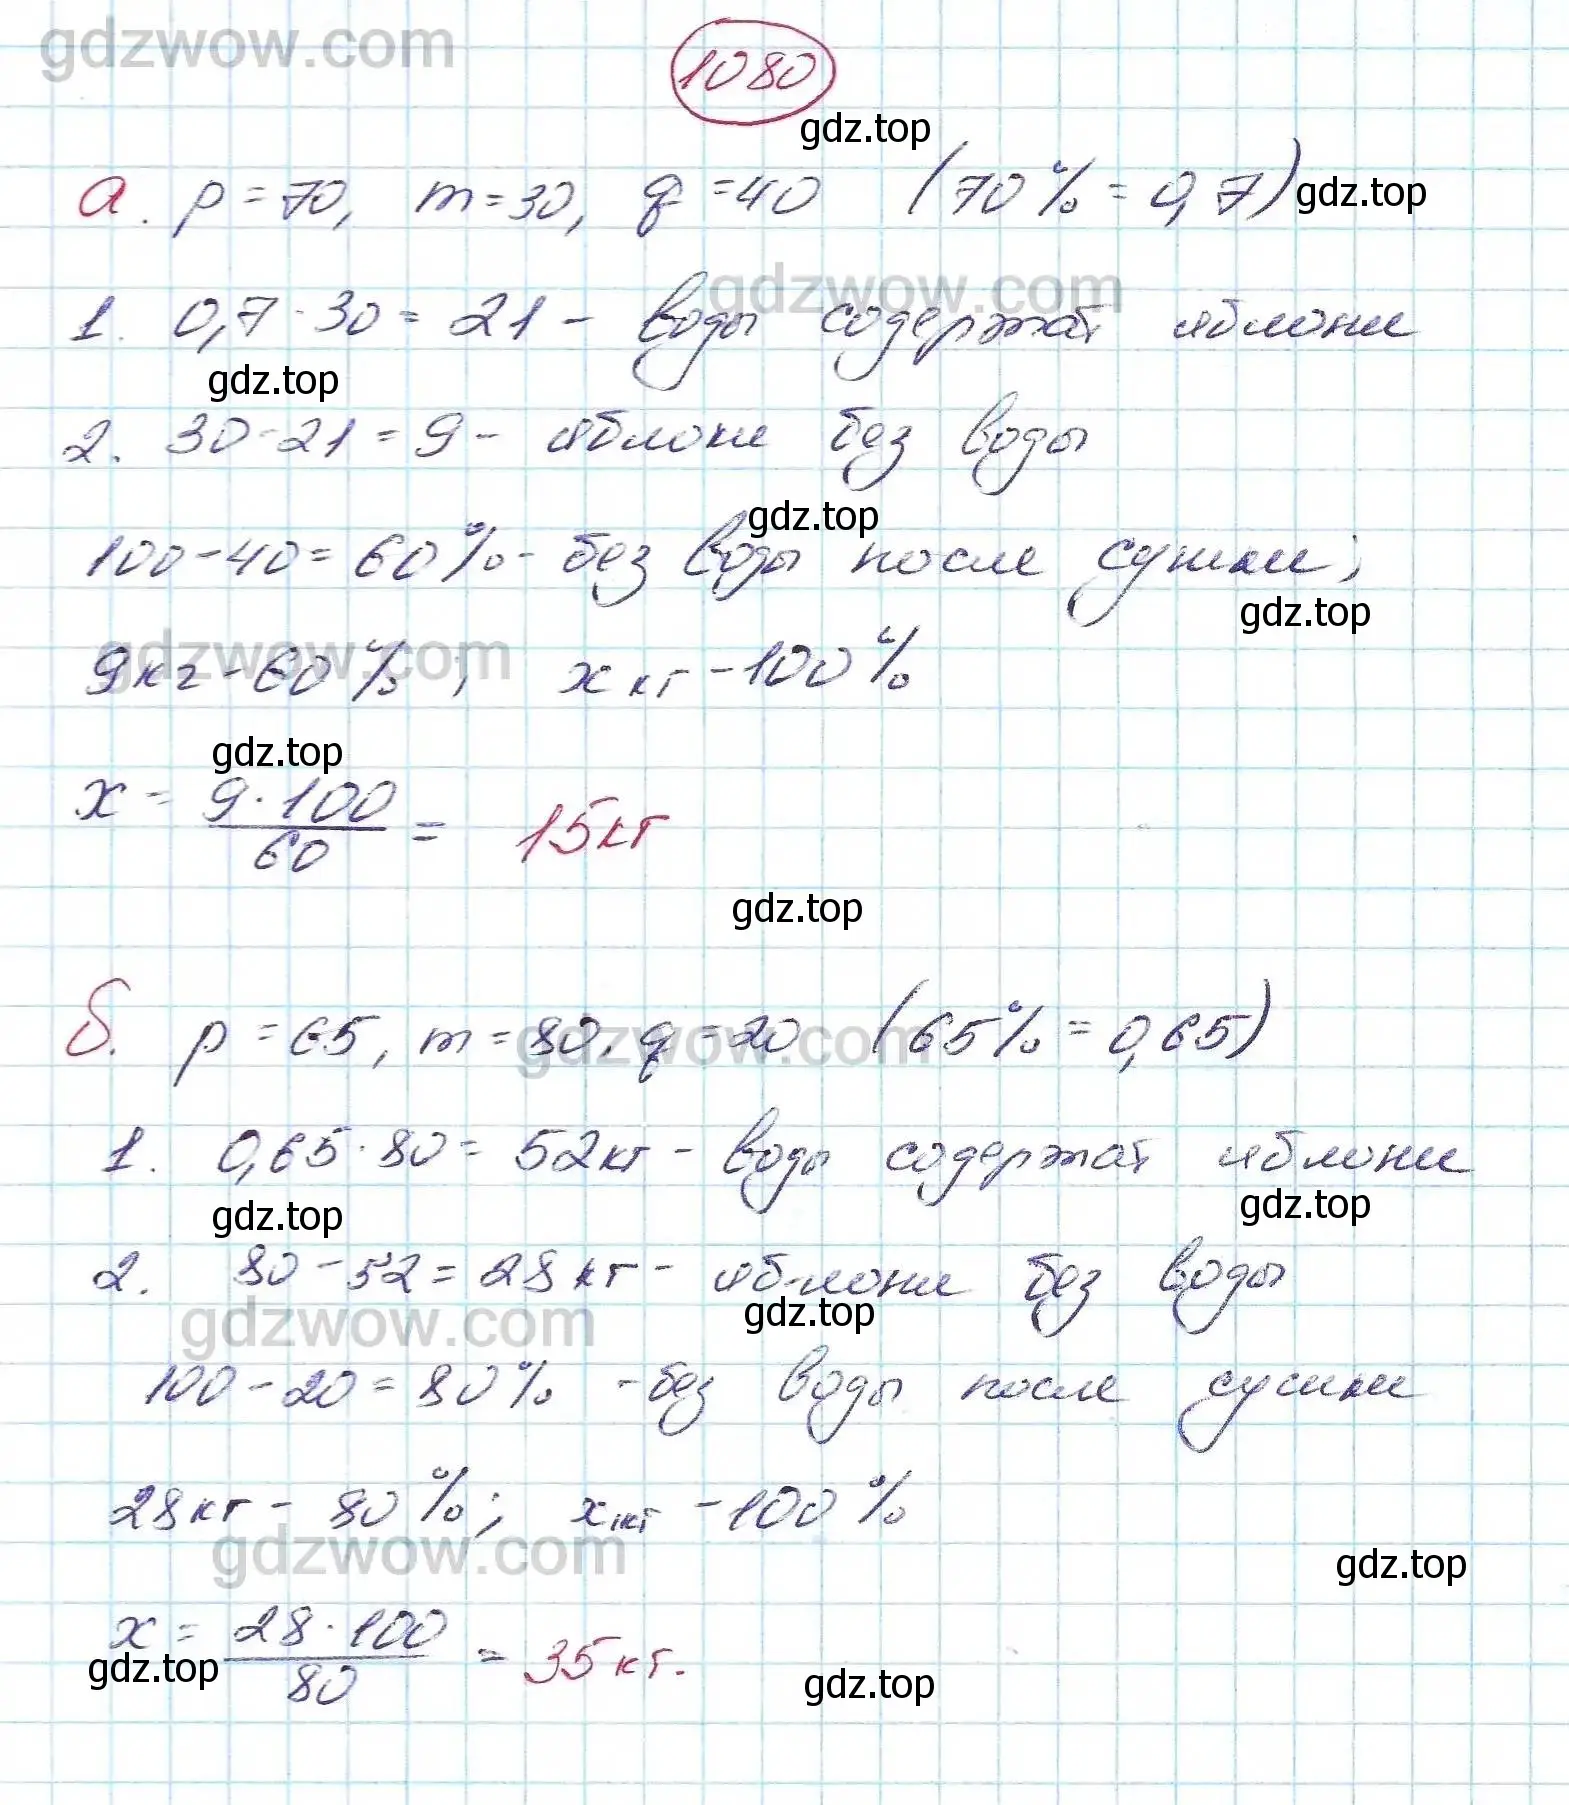 gdzwow.com
1080
gdz.top
а. p = 70, m = 30, q = 40 (70% = 0,7) gdz.top
gdzwow.com
1. 0,7 · 30 = 21 - воды содержат яблоки
gdz.top
2. 30 - 21 = 9 - яблоки без воды
gdz.top
100 - 40 = 60% - без воды после сушки;
gdz.top
gdzwow.com
9 кг - 60%; x кг - 100%
gdz.top
x = 9 · 100 / 60 = 15 кг
gdz.top
б. p = 65, m = 80, q = 20 (65% = 0,65)
gdzwow.com
1. 0,65 · 80 = 52 кг - воды содержат яблоки
gdz.top gdz.top
2. 80 - 52 = 28 кг - яблоки без воды
gdz.top
gdzwow.com
100 - 20 = 80% - без воды после сушки
28 кг - 80%; x кг - 100%
gdzwow.com
gdz.top
x = 28 · 100 / 80 = 35 кг.
gdz.top gdz.top